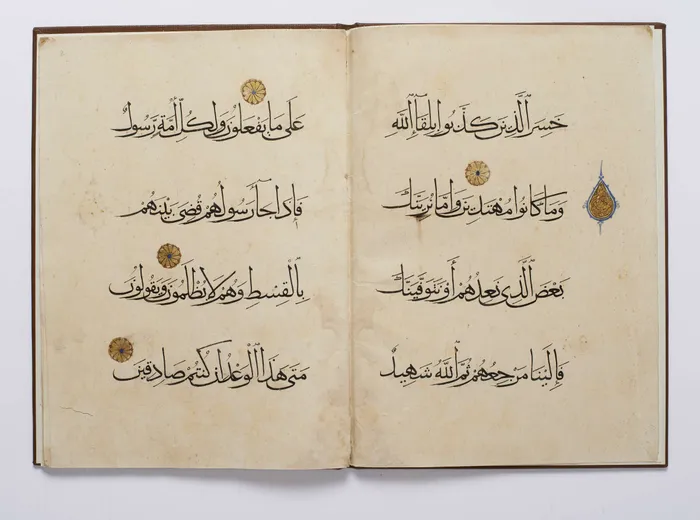 خَسِرَ الَّذِينَ كَذَّبُوا بِلِقَاءِ اللَّهِ
وَمَا كَانُوا مُهْتَدِينَ وَإِمَّا نُرِيَنَّكَ
بَعْضَ الَّذِي نَعِدُهُمْ أَوْ نَتَوَفَّيَنَّكَ
فَإِلَيْنَا مَرْجِعُهُمْ ثُمَّ اللَّهُ شَهِيدٌ
عَلَى مَا يَفْعَلُونَ وَلِكُلِّ أُمَّةٍ رَسُولٌ
فَإِذَا جَاءَ رَسُولُهُمْ قُضِيَ بَيْنَهُمْ
بِالْقِسْطِ وَهُمْ لَا يُظْلَمُونَ وَيَقُولُونَ
مَتَى هَذَا الْوَعْدُ إِنْ كُنْتُمْ صَادِقِينَ